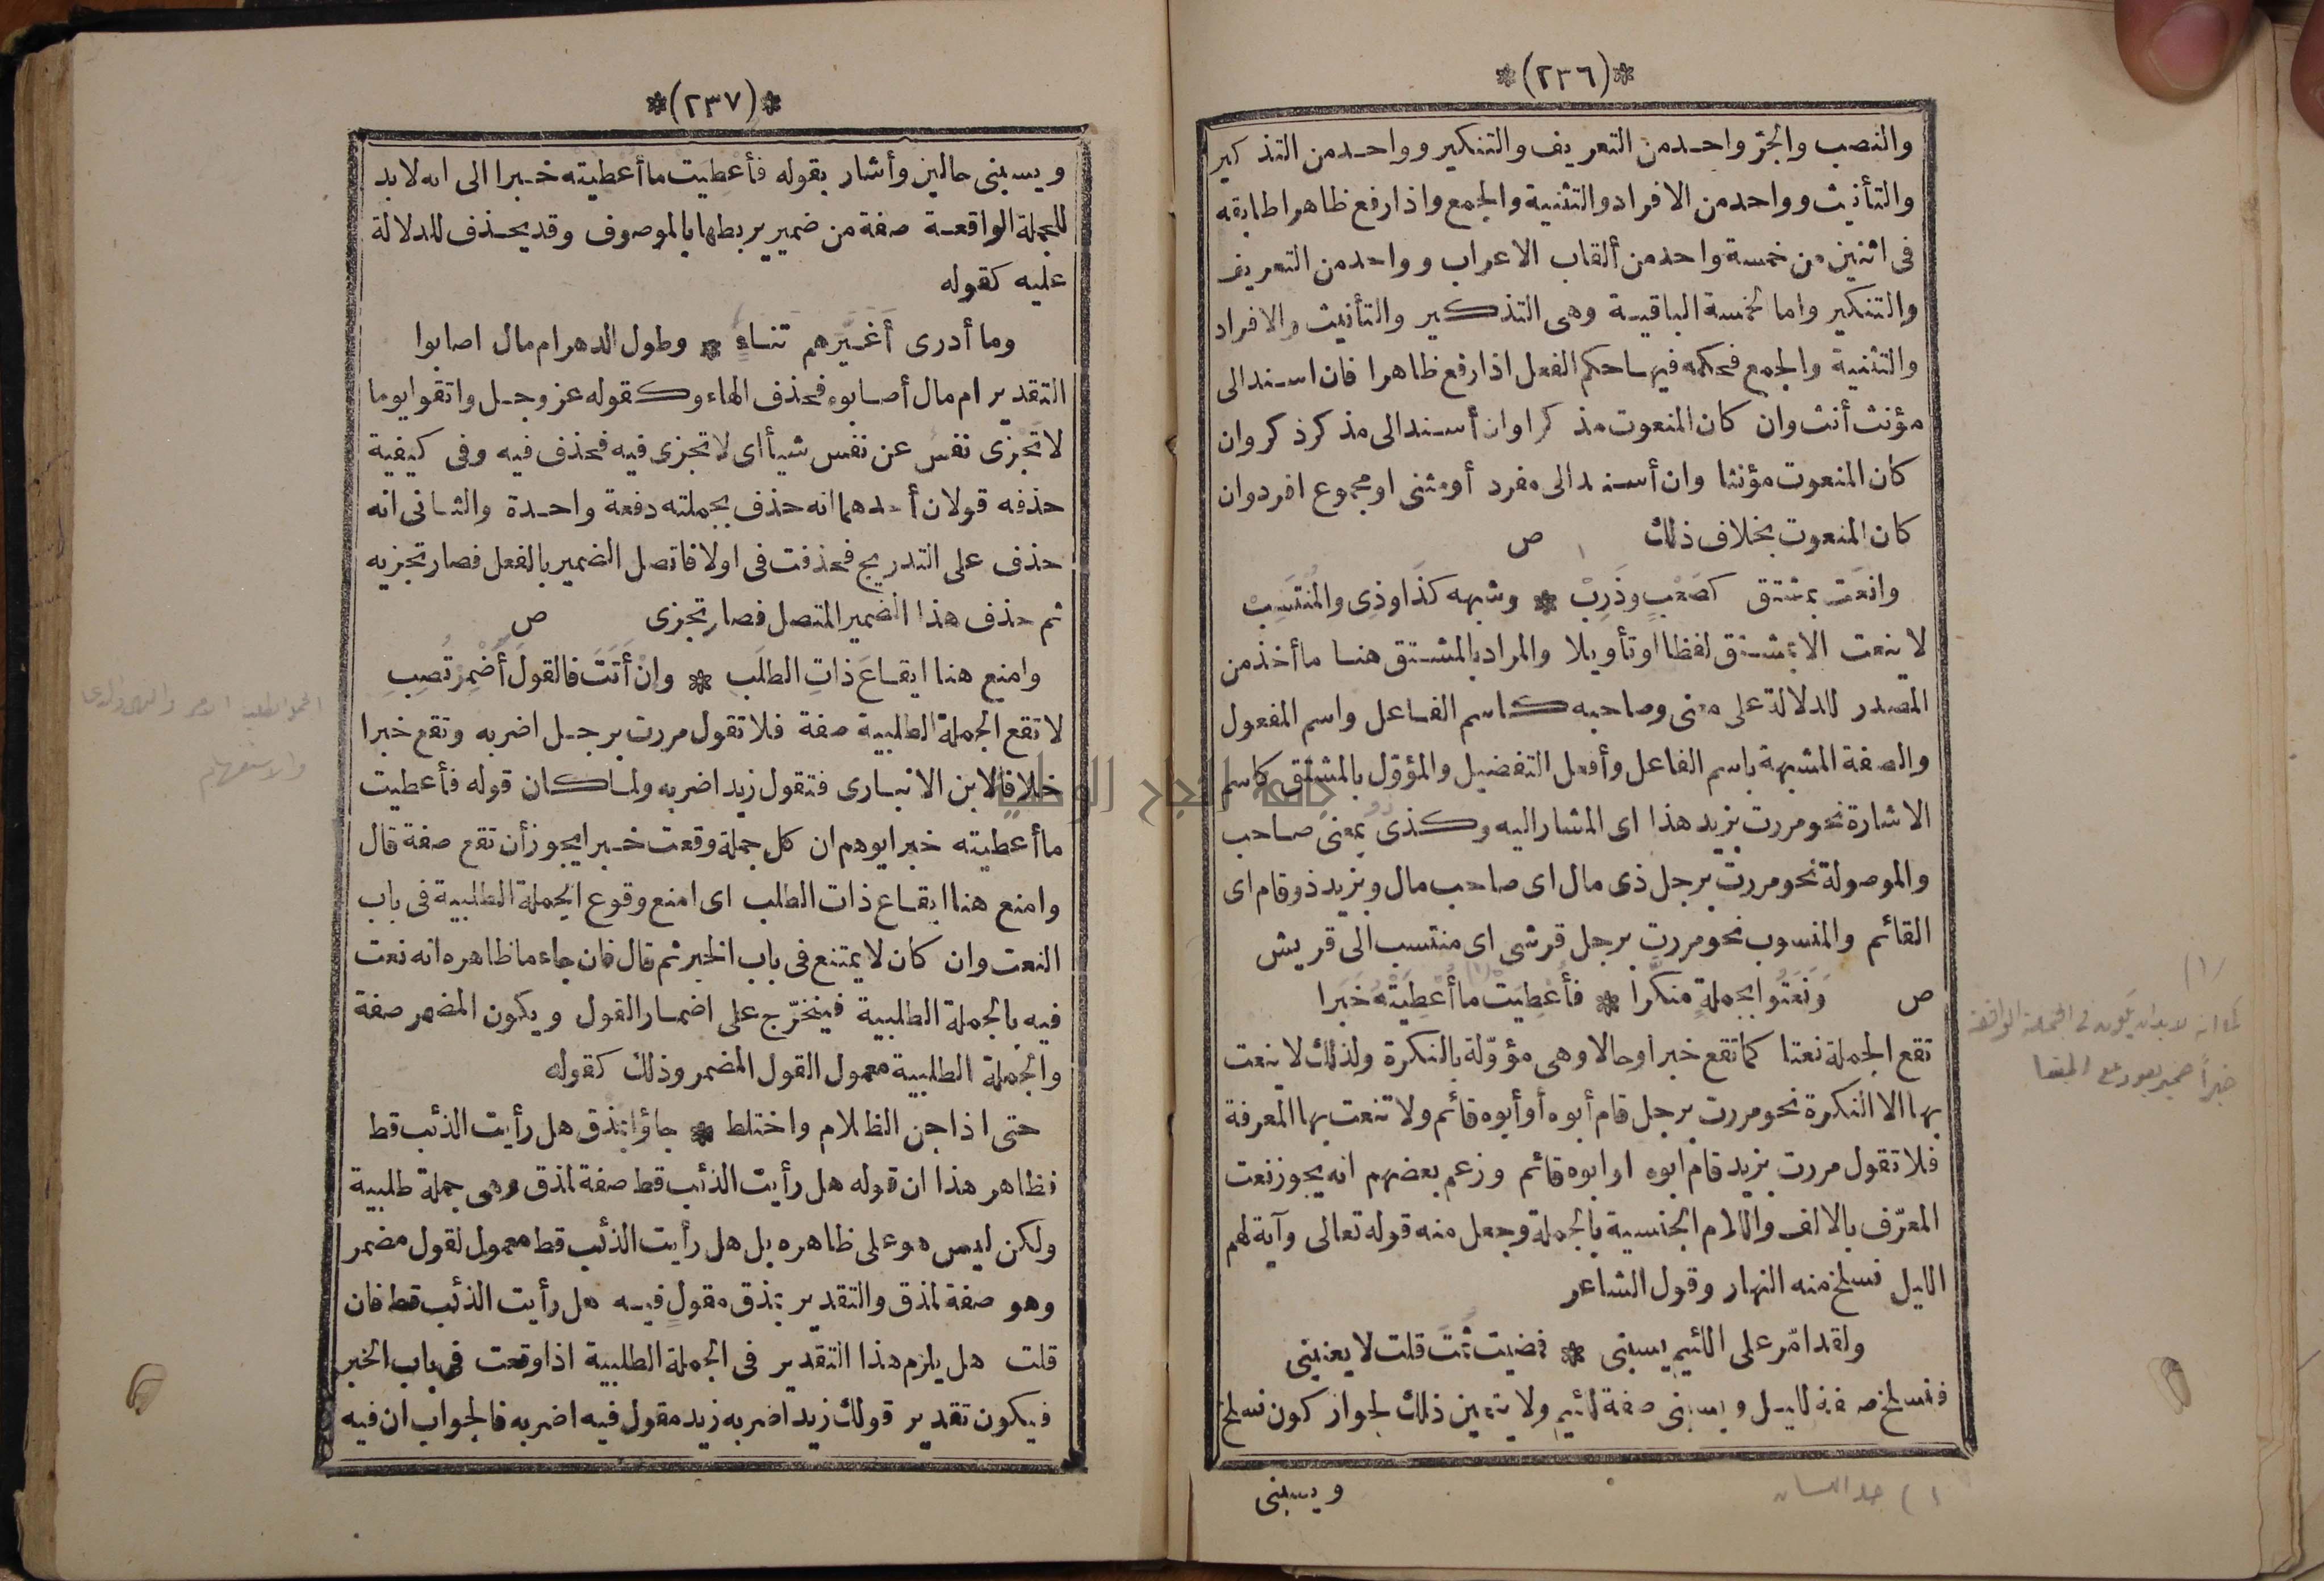 *(٢٣٦)*
والنصب والجرّ واحد من التعريف والتنكير وواحد من التذكير
والتأنيث وواحد من الافراد والتثنية والجمع واذا رفع ظاهرا طابقه
فى اثنين من خمسة واحد من ألقاب الاعراب وواحد من التعريف
والتنكير واما الخمسة الباقية وهى التذكير والتأنيث والافراد
والتثنية والجمع فحكمه فيها حكم الفعل اذا رفع ظاهرا فان اسند الى
مؤنث أنث وان كان المنعوت مذكرا وان أسند الى مذكر ذكر وان
كان المنعوت مؤنثا وان أسند الى مفرد أو مثنى او مجموع افرد وان
كان المنعوت بخلاف ذلك ص
وانعَت بمشتق كصَعْبٍ وذَرِبْ * وشبهه كذَا وذِى والمُنْتَسِبْ
لا ينعت الا بمشتق لفظا او تأويلا والمراد بالمشتق هنا ما أخذ من
المصدر للدلالة على معنى وصاحبه كاسم الفاعل واسم المفعول
والصفة المشبهة باسم الفاعل وأفعل التفضيل والمؤوّل بالمشتق كاسم
الاشارة نحو مررت بزيد هذا اى المشار اليه وكذى بمعنى صاحب
والموصولة نحو مررت برجل ذى مال اى صاحب مال وبزيد ذو قام اى
القائم والمنسوب نحو مررت برجل قرشى اى منتسب الى قريش
ص وَنَعَتُوا بجملةٍ منكّرا * فأُعْطِيَتْ ما أُعْطِيَتْهُ خَبَرا
تقع الجملة نعتا كما تقع خبرا وحالا وهى مؤوّلة بالنكرة ولذلك لا ينعت
بها الا النكرة نحو مررت برجل قام أبوه أو أبوه قائم ولا تنعت بها المعرفة
فلا تقول مررت بزيد قام ابوه او ابوه قائم وزعم بعضهم انه يجوز نعت
المعرّف بالالف واللام الجنسية بالجملة وجعل منه قوله تعالى وآية لهم
الليل نسلخ منه النهار وقول الشاعر
ولقد امّر على اللئيم يسبنى * فمضيت ثمّت قلت لا يعنينى
فنسلخ صفة لليل ويسبنى صفة للئيم ولا يتعين ذلك لجواز كون نسلخ
ويسبنى
(١)
لما انه لابد ان يكون فى الجملة الواقعة
خبراً ضمير يعود على المبتدا
*(٢٣٧)*
ويسبنى حالين وأشار بقوله فأعْطيَتْ ما أعْطيَتْه خبرا الى انه لابد
للجملة الواقعة صفة من ضمير يربطها بالموصوف وقد يحذف للدلالة
عليه كقوله
وما أدرى أَغَيّرَهم تناءٍ * وطول الدهر ام مال اصابوا
التقدير ام مال أصابوه فحذف الهاء وكقوله عز وجل واتقوا يوما
لا تجزى نفس عن نفس شيأ اى لا تجزى فيه فحذف فيه وفى كيفية
حذفه قولان أحدهما انه حذف بجملته دفعة واحدة والثانى انه
حذف على التدريج فحذفت فى اولا فاتصل الضمير بالفعل فصار تجزيه
ثم حذف هذا الضمير المتصل فصار تجزى ص
وامنع هنا ايقاعَ ذاتِ الطلَبِ * وإنْ أَتَتْ فالقولَ أَضْمِرْ تُصِبِ
لا تقع الجملة الطلبية صفة فلا تقول مررت برجل اضربه وتقع خبرا
خلافا لابن الانبارى فتقول زيد اضربه ولما كان قوله فأعطيت
ما أعطيته خبرا يوهم ان كل جملة وقعت خبرا يجوز أن تقع صفة قال
وامنع هنا ايقاع ذات الطلب اى امنع وقوع الجملة الطلبية فى باب
النعت وان كان لا يمتنع فى باب الخبر ثم قال فان جاء ما ظاهره انه نعت
فيه بالجملة الطلبية فيخرّج على اضمار القول ويكون المضمر صفة
والجملة الطلبية معمول القول المضمر وذلك كقوله
حتى اذا جن الظلام واختلط * جاؤا بمذق هل رأيت الذئب قط
فظاهر هذا ان قوله هل رأيت الذئب قط صفة لمذق وهى جملة طلبية
ولكن ليس هو على ظاهره بل هل رأيت الذئب قط معمول لقول مضمر
وهو صفة لمذق والتقدير بمذق مقولٍ فيه هل رأيت الذئب قط فان
قلت هل يلزم هذا التقدير فى الجملة الطلبية اذا وقعت فى باب الخبر
فيكون تقدير قولك زيد اضربه زيد مقول فيه اضربه فالجواب ان فيه
والاستفهام
جامعة النجاح الوطنية